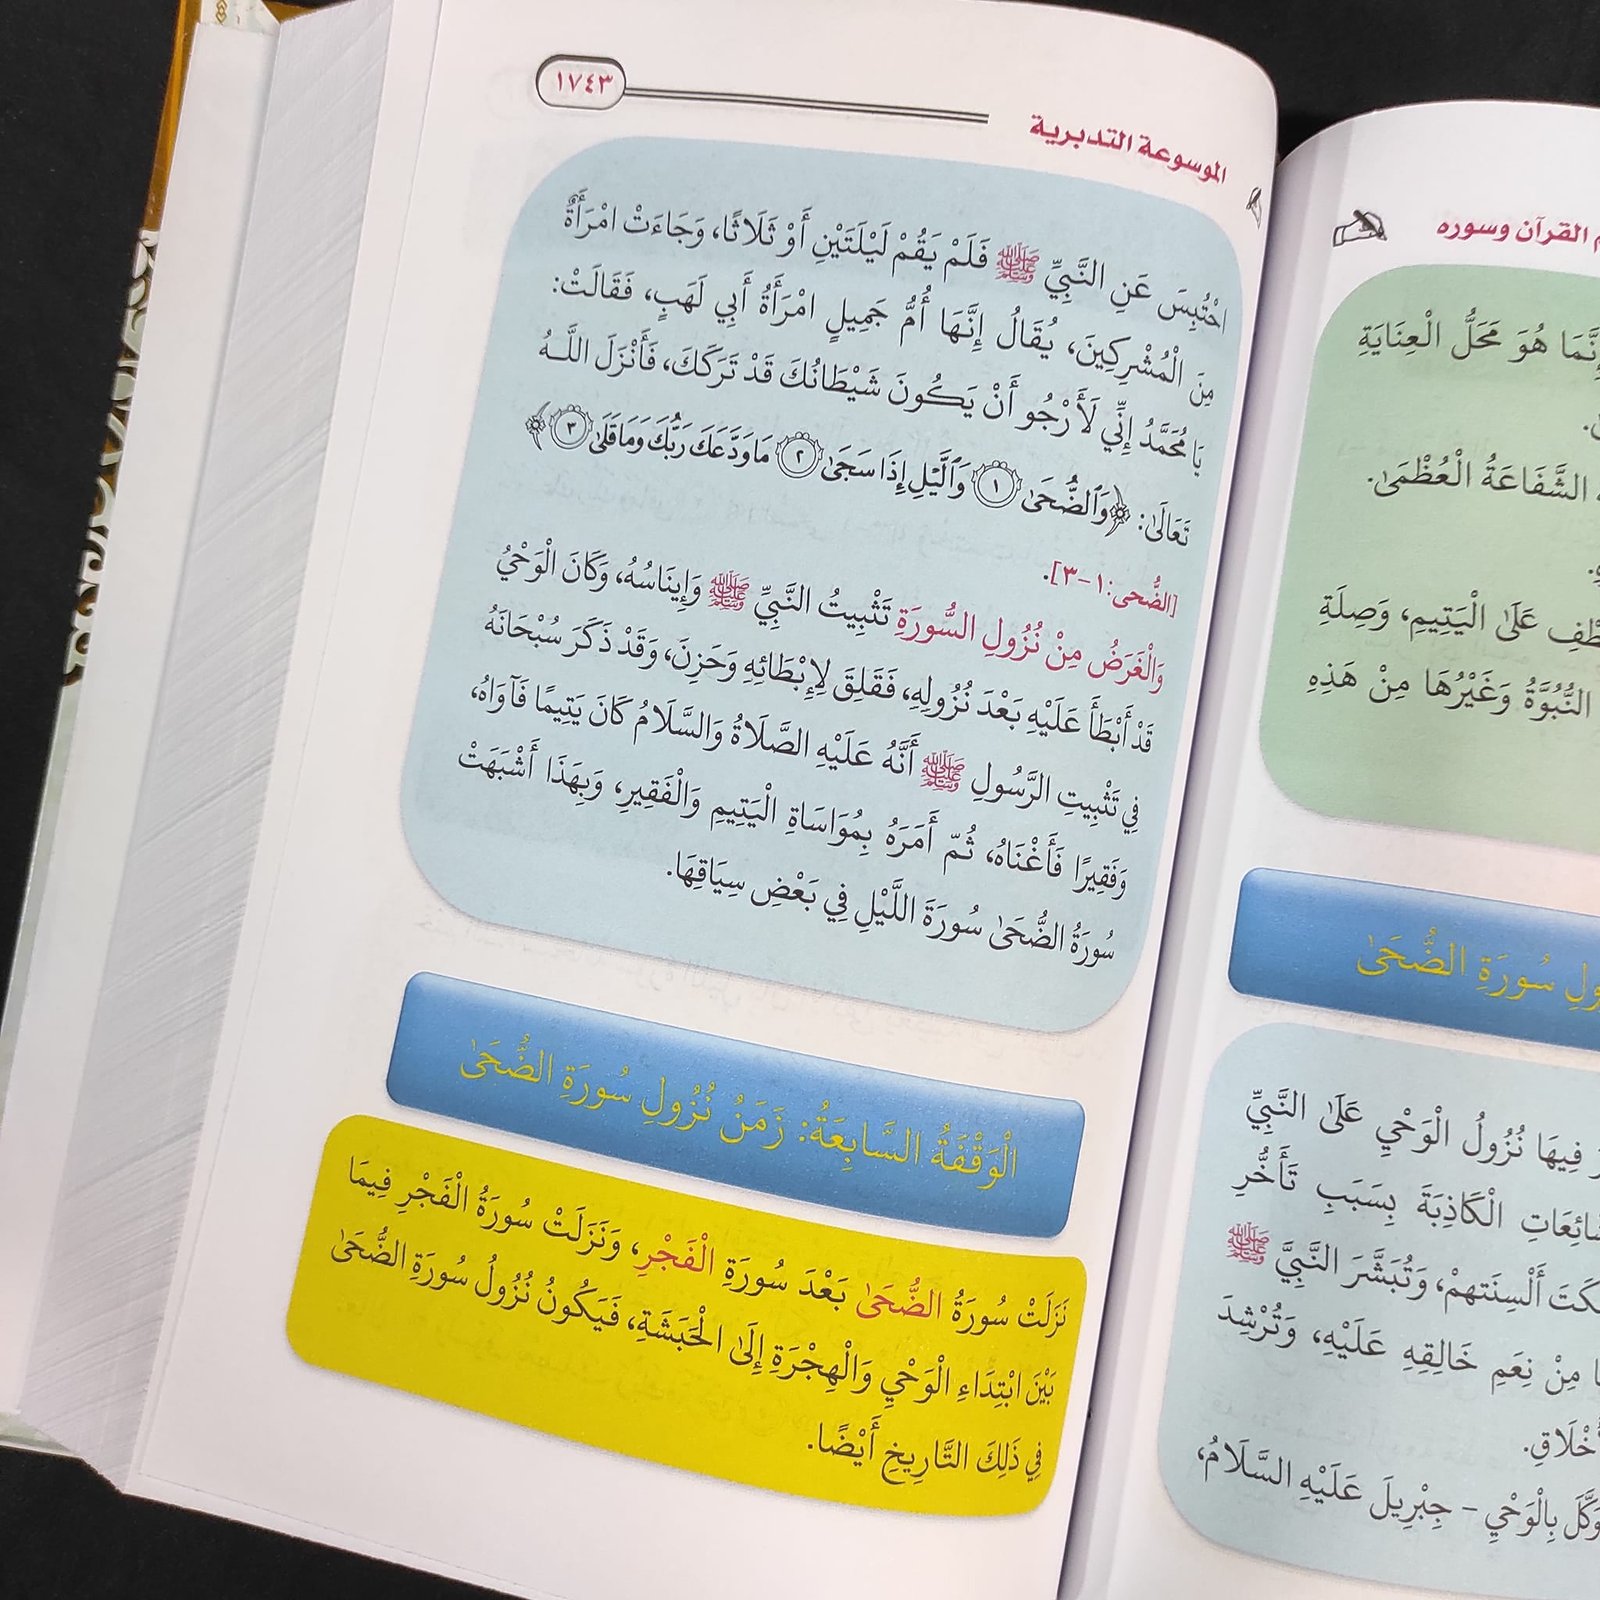 م القرآن وسوره
إِنَّمَا هُوَ مَحَلُّ الْعِنَايَةِ
الشَّفَاعَةُ الْعُظْمَىٰ.
عَلَى الْيَتِيمِ، وَصِلَةِ
النُّبُوَّةُ وَغَيْرُهَا مِنْ هَذِهِ
سُورَةِ الضُّحَىٰ
فِيهَا نُزُولُ الْوَحْيِ عَلَى النَّبِيِّ
الْكَاذِبَةَ بِسَبَبِ تَأَخُّرِ
أَلْسِنَتهمْ، وَتُبَشَّرَ النَّبِيَّ ﷺ
مِنْ نِعَمِ خَالِقِهِ عَلَيْهِ، وَتُرْشِدَ
بِالْوَحْيِ - جِبْرِيلَ عَلَيْهِ السَّلَامُ،
الموسوعة التدبرية
١٧٤٣
احْتُبِسَ عَنِ النَّبِيِّ ﷺ فَلَمْ يَقُمْ لَيْلَتَيْنِ أَوْ ثَلَاثًا، وَجَاءَتْ امْرَأَةٌ
مِنَ الْمُشْرِكِينَ، يُقَالُ إِنَّهَا أُمُّ جَمِيلٍ امْرَأَةُ أَبِي لَهَبٍ، فَقَالَتْ:
يَا مُحَمَّدُ إِنِّي لَأَرْجُو أَنْ يَكُونَ شَيْطَانُكَ قَدْ تَرَكَكَ، فَأَنْزَلَ اللهُ
تَعَالَىٰ: ﴿وَٱلضُّحَىٰ ١ وَٱلَّيْلِ إِذَا سَجَىٰ ٢ مَا وَدَّعَكَ رَبُّكَ وَمَا قَلَىٰ ٣﴾
[الضُّحى:١-٣].
وَالْغَرَضُ مِنْ نُزُولِ السُّورَةِ تَثْبِيتُ النَّبِيِّ ﷺ وَإِينَاسُهُ، وَكَانَ الْوَحْيُ
قَدْ أَبْطَأَ عَلَيْهِ بَعْدَ نُزُولِهِ، فَقَلِقَ لِإِبْطَائِهِ وَحَزِنَ، وَقَدْ ذَكَرَ سُبْحَانَهُ
فِي تَثْبِيتِ الرَّسُولِ ﷺ أَنَّهُ عَلَيْهِ الصَّلَاةُ وَالسَّلَامُ كَانَ يَتِيمًا فَآوَاهُ،
وَفَقِيرًا فَأَغْنَاهُ، ثُمّ أَمَرَهُ بِمُوَاسَاةِ الْيَتِيمِ وَالْفَقِيرِ، وَبِهَذَا أَشْبَهَتْ
سُورَةُ الضُّحَىٰ سُورَةَ اللَّيْلِ فِي بَعْضِ سِيَاقِهَا.
الْوَقْفَةُ السَّابِعَةُ: زَمَنُ نُزُولِ سُورَةِ الضُّحَىٰ
نَزَلَتْ سُورَةُ الضُّحَىٰ بَعْدَ سُورَةِ الْفَجْرِ، وَنَزَلَتْ سُورَةُ الْفَجْرِ فِيمَا
بَيْنَ ابْتِدَاءِ الْوَحْيِ وَالْهِجْرَةِ إِلَى الْحَبَشَةِ، فَيَكُونُ نُزُولُ سُورَةِ الضُّحَىٰ
فِي ذَلِكَ التَّارِيخِ أَيْضًا.